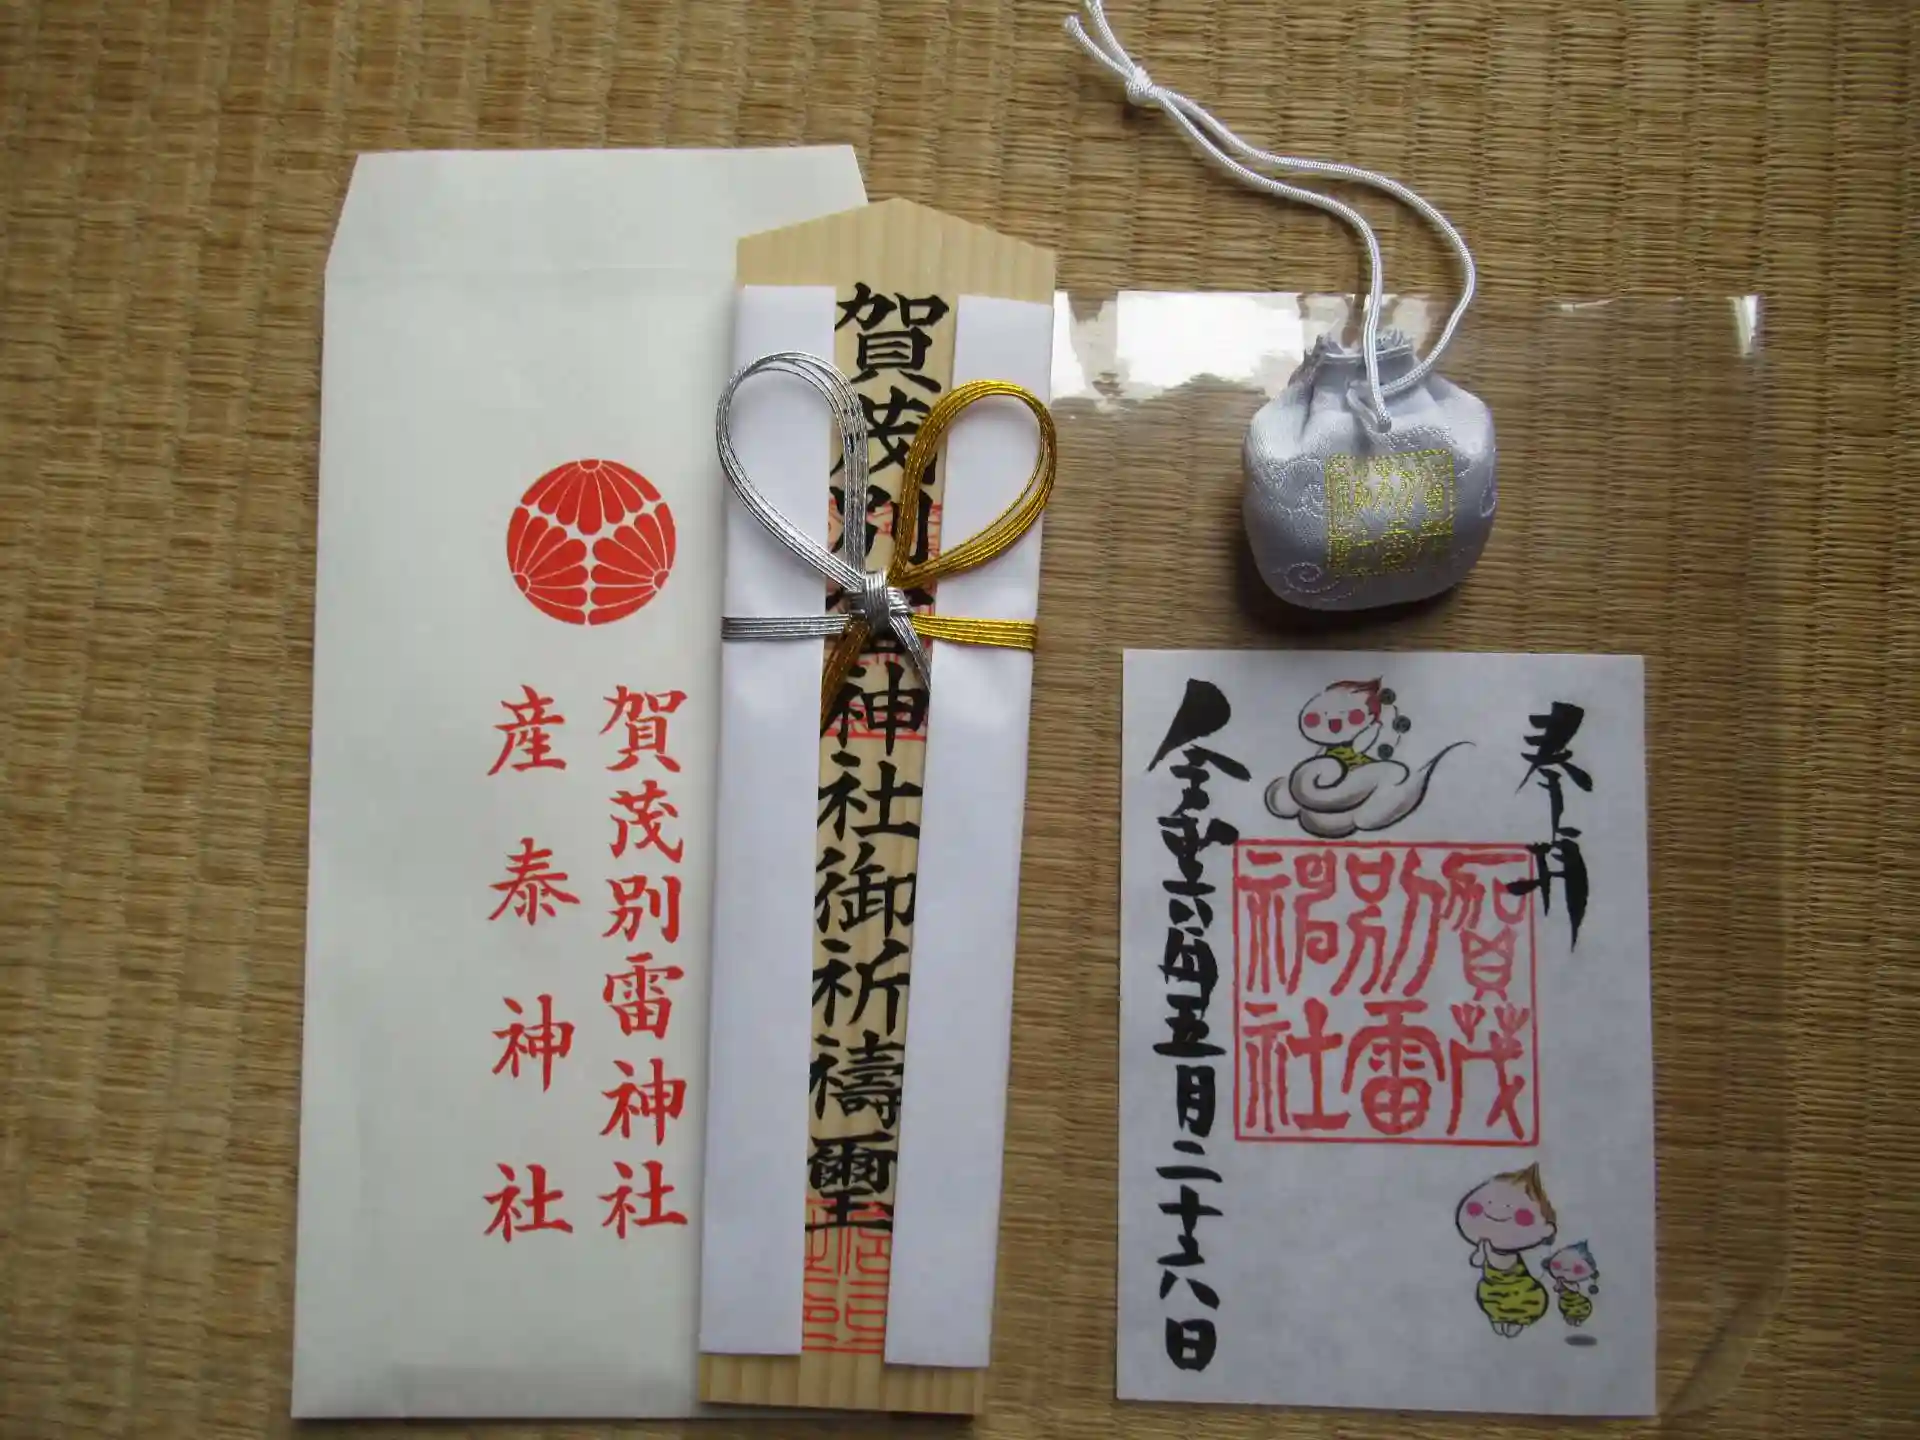 賀茂別雷神社
産泰神社
賀茂別雷神社御祈禱璽
奉拝
賀茂
別雷
神社
令和六年五月二十六日